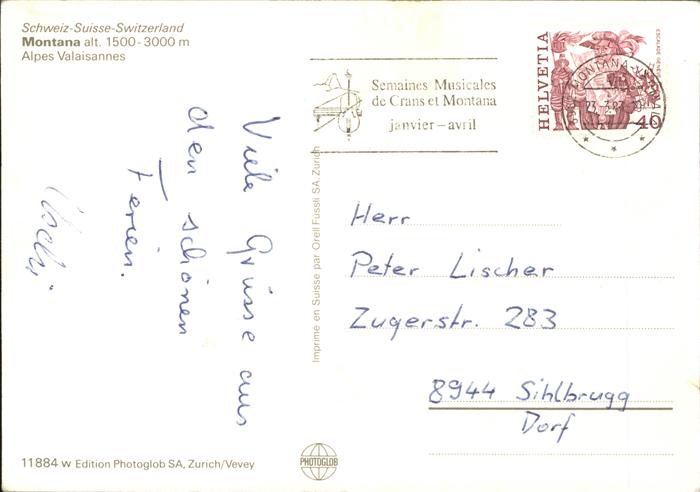 Schweiz-Suisse-Switzerland
Montana alt. 1500-3000 m
Alpes Valaisannes
Semaines Musicales
de Crans et Montana
janvier – avril
HELVETIA
ESCALADE GENÈVE
40
MONTANA-V
Viele Grüsse aus
den schönen
Ferien.
Imprimé en Suisse par Orell Füssli SA, Zurich
Herr
Peter Lischer
Zugerstr. 283
8944 Sihlbrugg
Dorf
11884 w Edition Photoglob SA, Zurich/Vevey
PHOTOGLOB